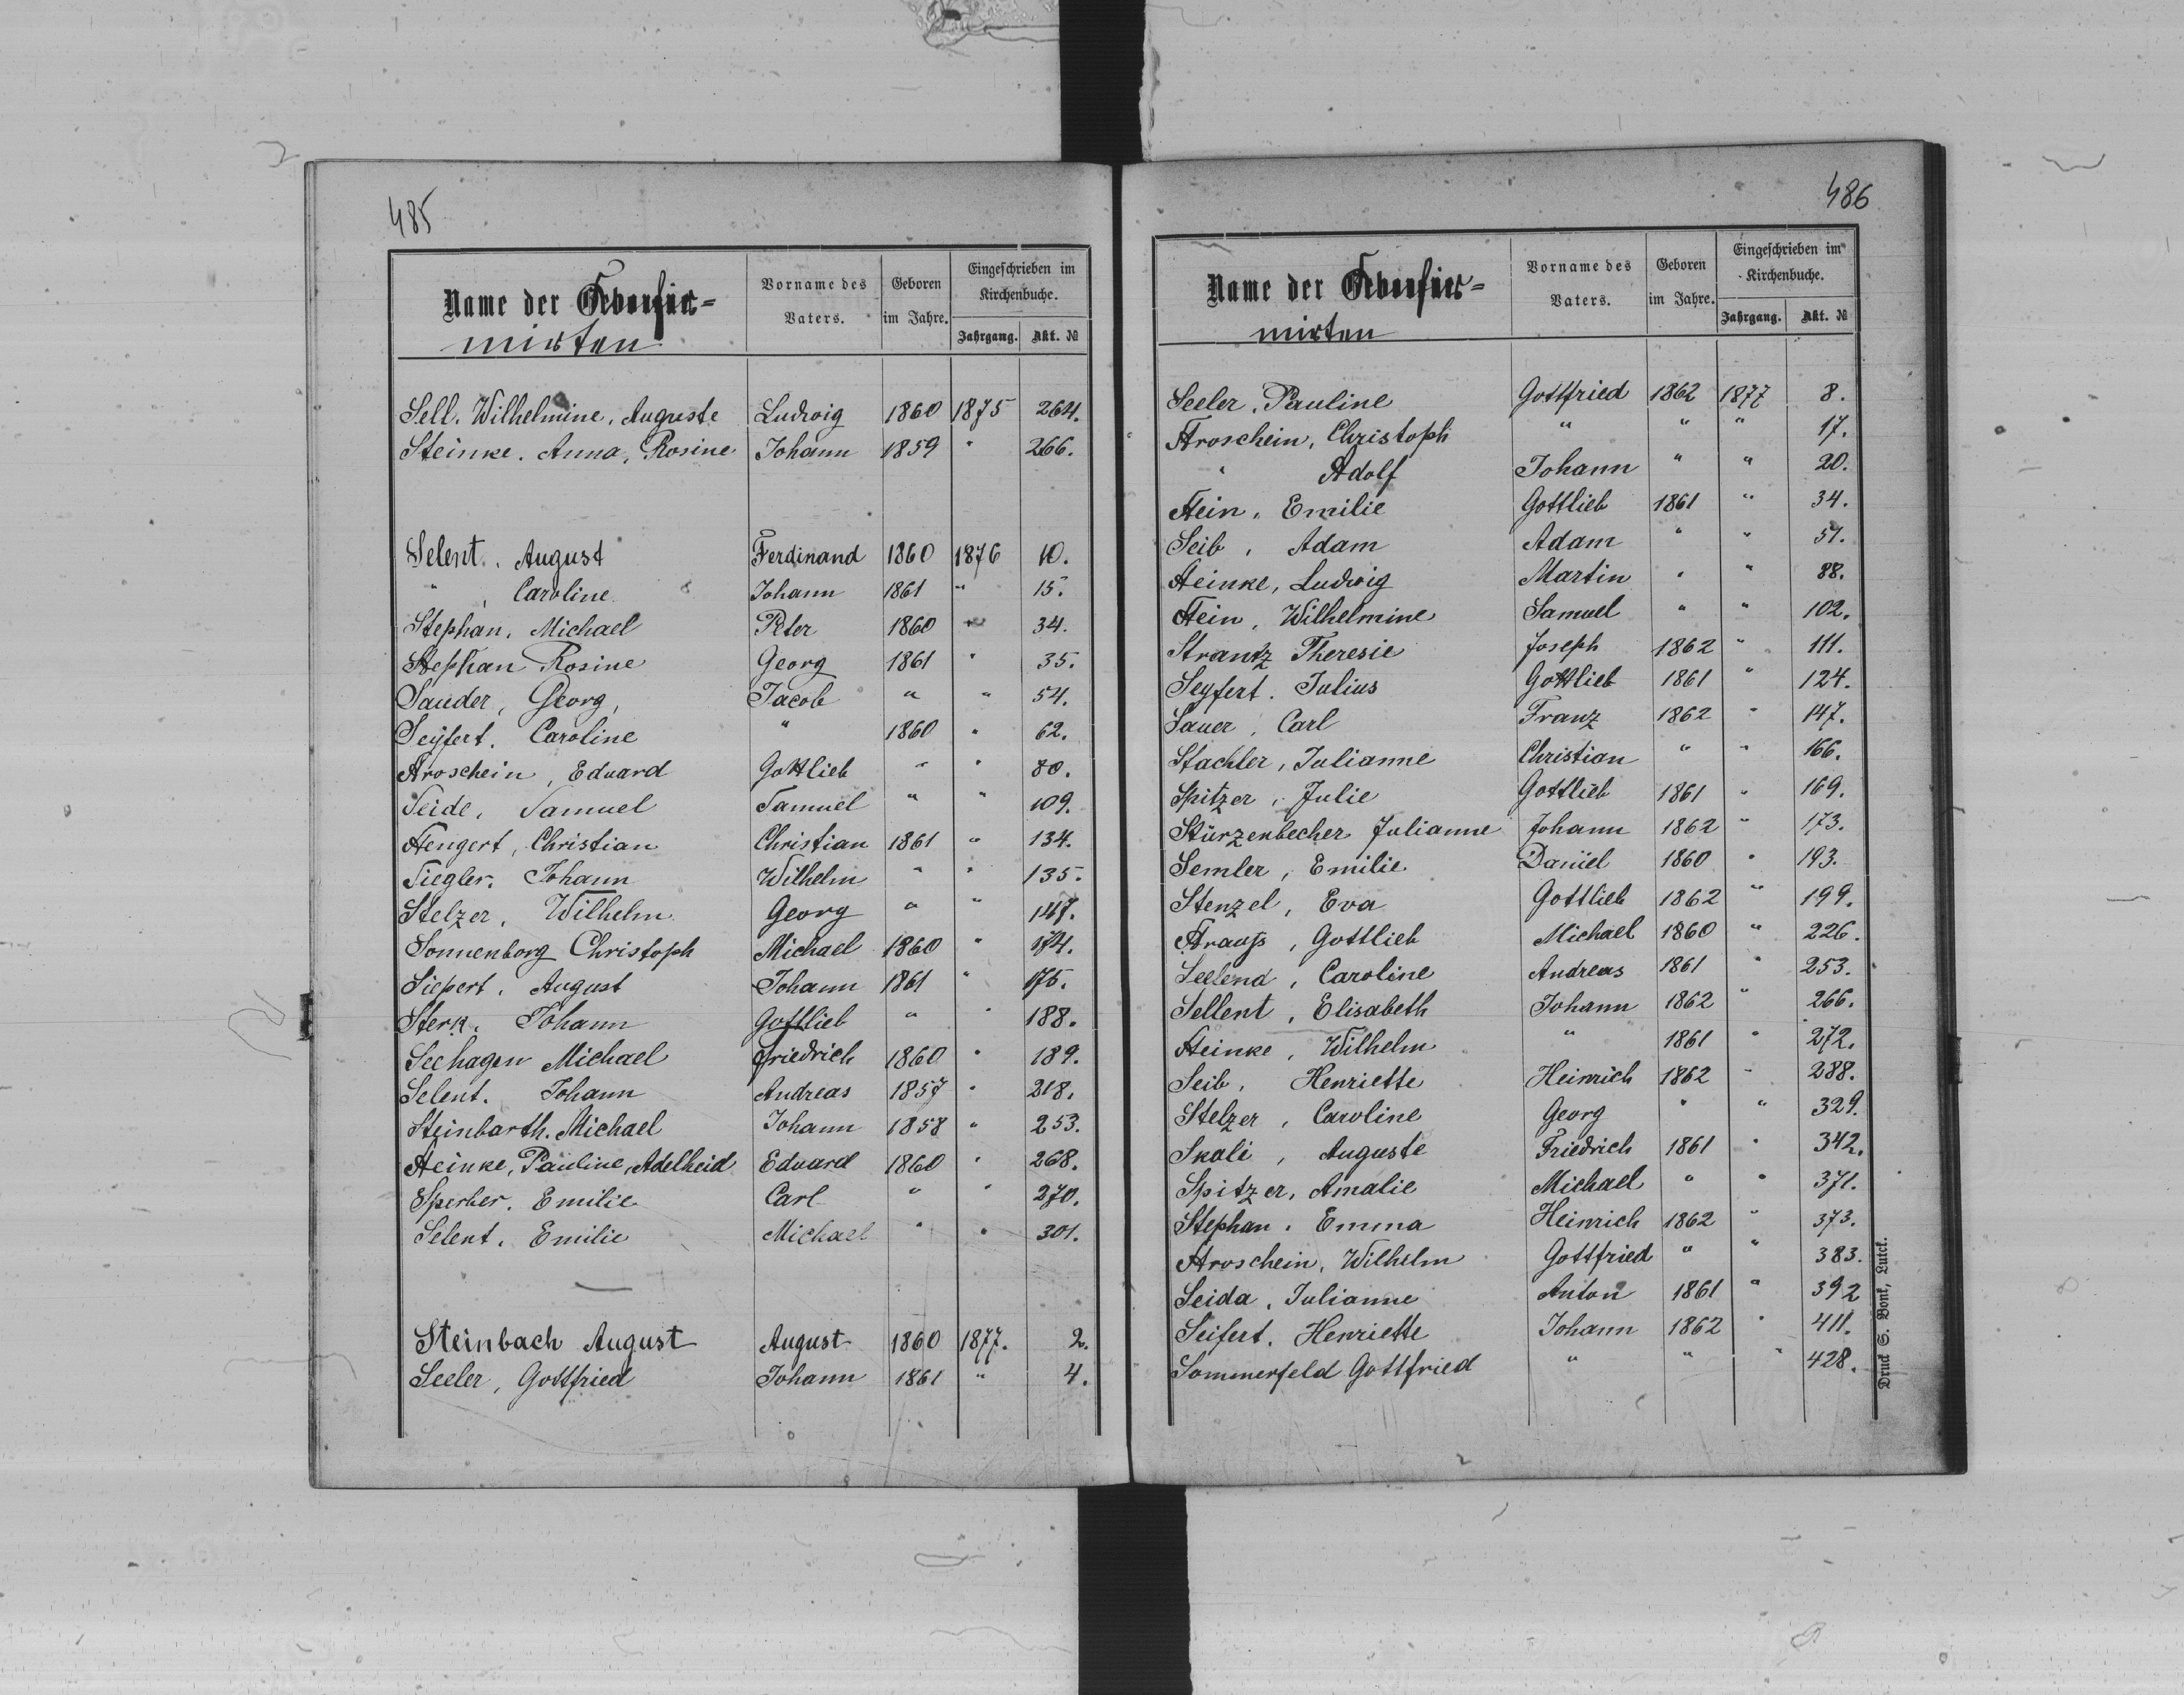 485
Name der Confir=
mirten
Vorname des Vaters.
Geboren im Jahre.
Eingeschrieben im Kirchenbuche.
Jahrgang. Akt. №
Sell. Wilhelmine, Auguste Ludwig 1860 1875 264.
Steinke. Anna, Rosine Johann 1859 " 266.
Selent. August Ferdinand 1860 1876 10.
" , Caroline Johann 1861 " 15.
Stephan, Michael Peter 1860 " 34.
Stephan Rosine Georg 1861 " 35.
Sauder, Georg, Jacob " " 54.
Seyfert. Caroline " 1860 " 62.
Stroschein, Eduard Gottlieb " " 80.
Seide, Samuel Samuel " " 109.
Stengert, Christian Christian 1861 " 134.
Siegler. Johann Wilhelm " " 135.
Stelzer, Wilhelm Georg " " 147.
Sonnenborg Christoph Michael 1860 " 174.
Siepert. August Johann 1861 " 175.
Sterk. Johann Gottlieb " " 188.
Seehagen Michael Friedrich 1860 " 189.
Selent. Johann Andreas 1857 " 218.
Steinbarth. Michael Johann 1858 " 253.
Steinke, Pauline, Adelheid Eduard 1860 " 268.
Sperber. Emilie Carl " " 270.
Selent. Emilie Michael " " 301.
Steinbach August August 1860 1877. 2.
Seeler, Gottfried Johann 1861 " 4.
486
Name der Confir=
mirten
Vorname des Vaters.
Geboren im Jahre.
Eingeschrieben im Kirchenbuche.
Jahrgang. Akt. №
Seeler, Pauline Gottfried 1862 1877 8.
Stroschein, Christoph " " " 17.
" Adolf Johann " " 20.
Stein, Emilie Gottlieb 1861 " 34.
Seib, Adam Adam " " 51.
Steinke, Ludwig Martin " " 88.
Stein, Wilhelmine Samuel " " 102.
Strantz Theresie Joseph 1862 " 111.
Seyfert. Julius Gottlieb 1861 " 124.
Sauer, Carl Franz 1862 " 147.
Stachler, Julianne Christian " " 166.
Spitzer, Julie Gottlieb 1861 " 169.
Stürzenbecher Julianne Johann 1862 " 173.
Semler, Emilie Daniel 1860 " 193.
Stenzel, Eva Gottlieb 1862 " 199.
Strauß, Gottlieb Michael 1860 " 226.
Caroline Andreas 1861 " 253.
Sellent, Elisabeth Johann 1862 " 266.
Steinke, Wilhelm " 1861 " 272.
Seib, Henriette Heinrich 1862 " 288.
Stelzer, Caroline Georg " " 329.
Skali, Auguste Friedrich 1861 " 342.
Spitzer, Amalie Michael " " 371.
Stephan. Emma Heinrich 1862 " 373.
Stroschein, Wilhelm Gottfried " " 383.
Seida, Julianne Anton 1861 " 392
Seifert. Henriette Johann 1862 " 411.
Sommerfeld Gottfried " " " 428.
Druck S. Bonk, Lutck.